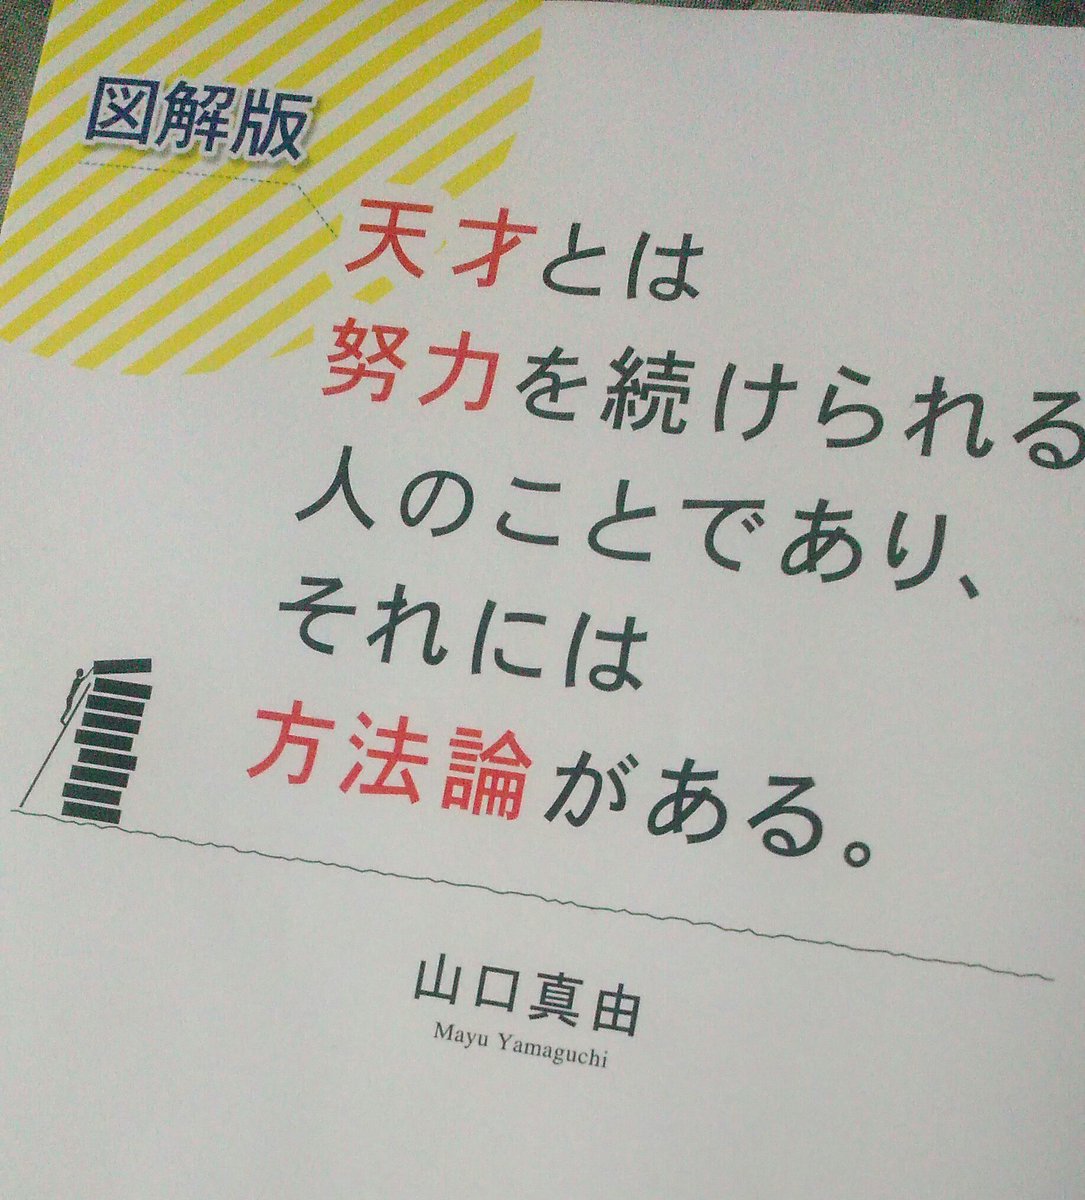 図解版
天才とは
努力を続けられる
人のことであり、
それには
方法論がある。
山口真由
Mayu Yamaguchi